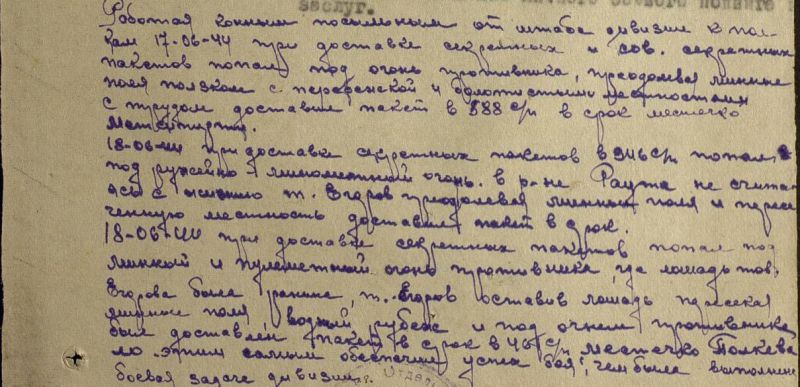 личного боевого подвига
заслуг.
Работая конным посыльным от штаба дивизии к пол-
кам 17-06-44 при доставке секретных и сов. секретных
пакетов попал под огонь противника, преодолевая минные
поля ползком с пересеченской и болотистыми местностями
с трудом доставил пакет в 588 с/п в срок местечко
18-06-44 при доставке секретных пакетов в 946 с/п попал
под ружейно-минометный огонь. в р-не Раута не счита-
ясь с жизнью т. Егоров преодолевая минный поля и пересе-
ченную местность доставил пакет в срок.
18-06-44 при доставке секретных пакетов попал под
минный и пулеметный огонь противника, где лошадь тов.
Егорова была ранена, т. Егоров оставив лошадь пересекая
минные поля, водный рубеж и под огнем противника
был доставлен пакет в срок в 46 с/п. местечко
ло этим самым обеспечил успех боя, чем была выполнена
боевая задача дивизии.